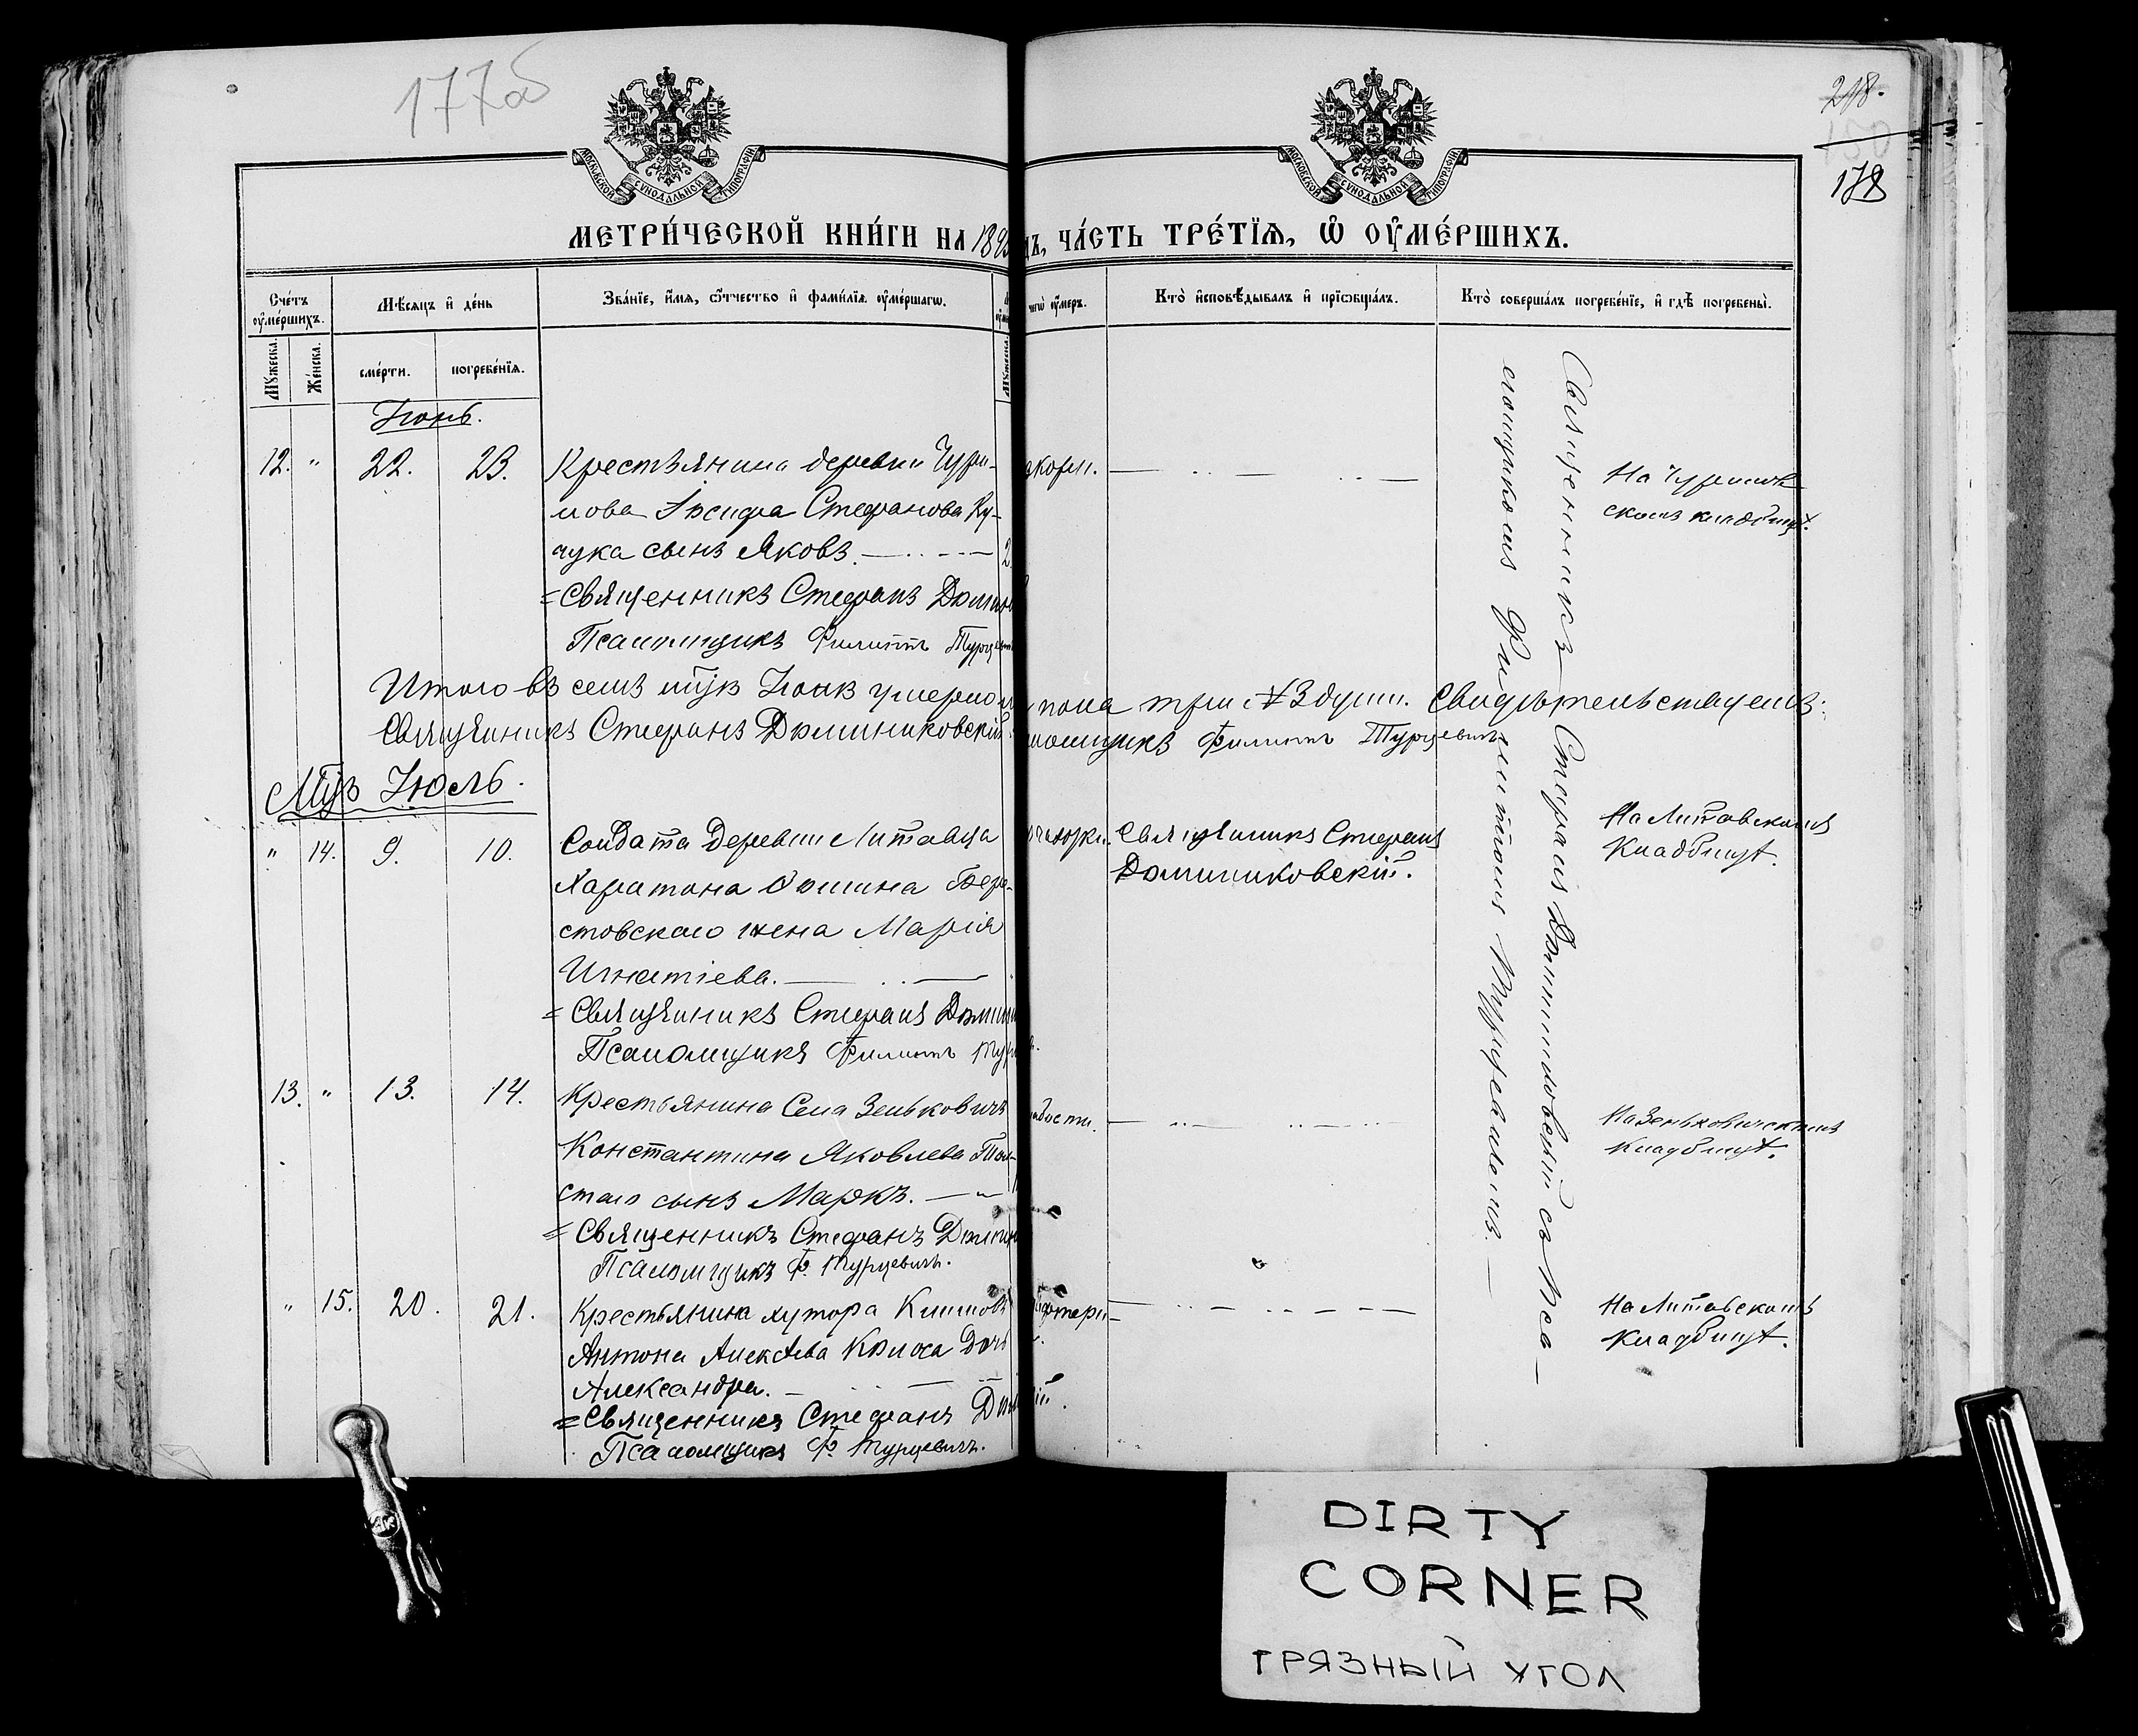 177об
218.
178
МОСКОВСКОЙ СѴНОДАЛЬНОЙ ТИПОГРАФІИ
МОСКОВСКОЙ СѴНОДАЛЬНОЙ ТИПОГРАФІИ
МЕТРИ́ЧЕСКОЙ КНИ́ГИ НА 189
ДЪ, ЧА́СТЬ ТРЕ́ТЇѦ, Ѽ ОУ҆МЕ́РШИХЪ.
Сче́тъ оу҆ме́ршихъ.
Мѣ́сяцъ и҆ де́нь
Зва́нїе, и҆́мѧ, ѻ҆́тчество и҆ фами́лїѧ оу҆ме́ршагѡ.
чегѡ̀ оу҆́меръ.
Кто̀ и҆сповѣ́дывалъ и҆ прїѡбща́лъ.
Кто̀ соверша́лъ погребе́нїе, и҆ гдѣ̀ погребены̀.
Мꙋ́жеска.
Же́нска.
сме́рти.
погребе́нїѧ.
Мꙋ́жеска.
Іюнь.
12. " 22. 23. Крестьянина деревни Чури-
лова Іосифа Стефанова Ку-
чука сынъ Яковъ. 2
=Священникъ Стефанъ Домин
Псаломщикъ Филиппъ Турцеви
скорл.
На Чурилов
скомъ кладбищѣ.
Итого въ семъ мцѣ Іюнѣ умерло
пола три 3 души. Свидѣтельствуемъ:
Священникъ Стефанъ Доминиковскій
ломщикъ Филиппъ Турцевичъ
Мцъ Іюль.
" 14. 9. 10. Солдата Деревни Литавца
Харитона Ѳомина Бере-
стовскаго жена Марія
Игнатіева.
=Священникъ Стефанъ Домини
Псаломщикъ Филиппъ Тур
чахотки. Священникъ Стефанъ
Доминиковскій.
На Литовскомъ
Кладбищѣ.
13. " 13. 14. Крестьянина Села Зеньковичъ
Константина Яковлева Тол-
стаго сынъ Маркъ.
=Священникъ Стефанъ Домин
Псаломщикъ Ф. Турцевичъ.
лабости.
На Зеньковическомъ
Кладбищѣ.
" 15. 20. 21. Крестьянина хутора Климовъ
Антона Алексѣева Дочь
Александра.
=Священникъ Стефанъ Дом
Псаломщикъ Ф. Турцевичъ.
фтери-
ій.
На Литовскомъ
Кладбищѣ.
Священникъ Стефанъ Доминиковскій съ Пса-
ломщикомъ Филиппомъ Турцевичемъ.
DIRTY
CORNER
ГРЯЗНЫЙ УГОЛ